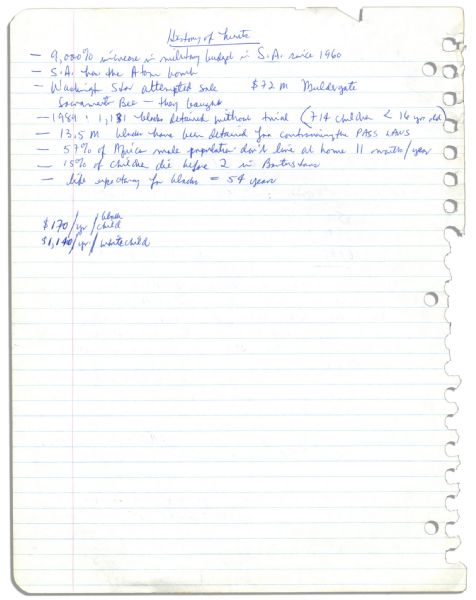 History of
— 9,000% increase in military budget in S.A. since 1960
— S.A. has the Atom bomb
— Washingt Star attempted sale $72 M Muldergate
Sacramento Bee — they bought
— 1984 : 1,131 blacks detained without trial (714 children < 16 yrs old)
— 13.5 M blacks have been detained for contravening the PASS LAWS
— 57% of African male population don't live at home 11 months/year
— 15% of children die before 2 in Bantustans
— life expectancy for blacks = 54 years
$170/yr/black child
$1,140/yr/white child